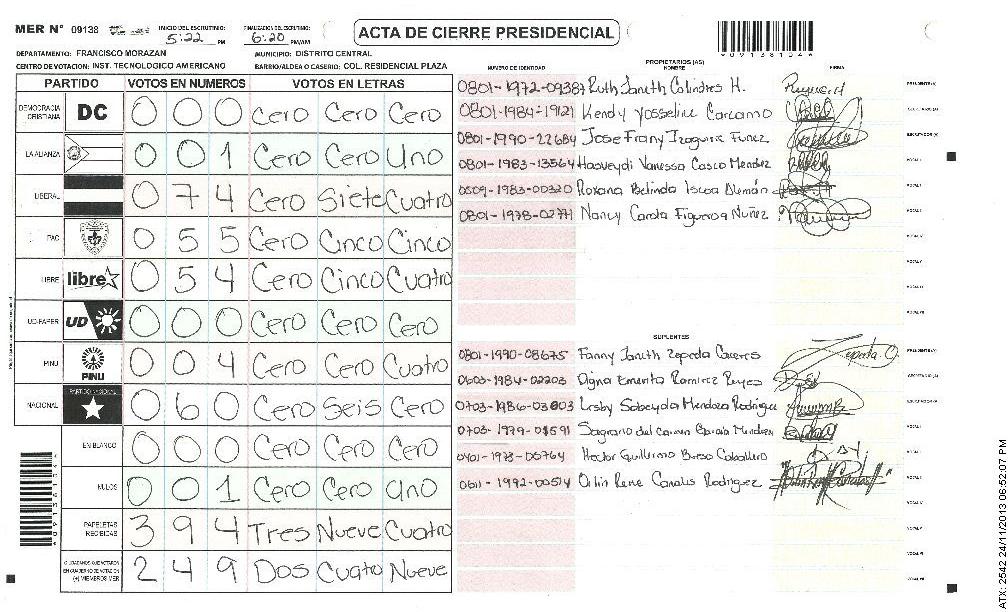 MER N° 09138 INICIO DEL ESCRUTINIO: 5:22 PM FINALIZACION DEL ESCRUTINIO: 6:20 PM/AM ACTA DE CIERRE PRESIDENCIAL
DEPARTAMENTO: FRANCISCO MORAZAN MUNICIPIO: DISTRITO CENTRAL
CENTRO DE VOTACION: INST. TECNOLOGICO AMERICANO BARRIO/ALDEA O CASERIO: COL. RESIDENCIAL PLAZA
PARTIDO VOTOS EN NUMEROS VOTOS EN LETRAS
DEMOCRACIA CRISTIANA DC 0 0 0 Cero Cero Cero
LA ALIANZA 0 0 1 Cero Cero Uno
LIBERAL 0 7 4 Cero Siete Cuatro
PAC 0 5 5 Cero Cinco Cinco
LIBRE libre 0 5 4 Cero Cinco Cuatro
UD-FAPER UD 0 0 0 Cero Cero Cero
PINU PINU 0 0 4 Cero Cero Cuatro
NACIONAL PARTIDO NACIONAL 0 6 0 Cero Seis Cero
EN BLANCO 0 0 0 Cero Cero Cero
NULOS 0 0 1 Cero Cero Uno
PAPELETAS RECIBIDAS 3 9 4 Tres Nueve Cuatro
CIUDADANOS QUE VOTARON EN CUADERNO DE VOTACION (+) MIEMBROS MER 2 4 9 Dos Cuatro Nueve
PROPIETARIOS (AS)
NUMERO DE IDENTIDAD NOMBRE FIRMA
0801-1972-09387 Ruth Janeth Colindres H. PRESIDENTE(A)
0801-1984-19121 Kendy Yosseline Carcamo SECRETARIO (A)
0801-1990-22684 Jose Frany Izaguirre Funez ESCRUTADOR (A)
0801-1983-13564 Haoveydi Vanessa Casco Mendez VOCAL I
0509-1983-00320 Roxana Belinda Iscoa Demán VOCAL II
0801-1978-02771 Nancy Carola Figueroa Nuñez VOCAL III
VOCAL IV
VOCAL V
VOCAL VI
VOCAL VII
SUPLENTES
0801-1990-08675 Fanny Janeth Zepeda Caceres Zepeda C. PRESIDENTE(A)
0603-1984-02203 Digna Emerita Ramirez Reyes SECRETARIO (A)
0703-1986-03003 Lesby Sobeyda Mendoza Rodriguez ESCRUTADOR (A)
0703-1979-01591 Sagrario del Carmen Garcia Mendez VOCAL I
0401-1973-00764 Hector Guillermo Bueso Caballero VOCAL II
0611-1992-00514 Orlin Rene Canales Rodriguez VOCAL III
VOCAL IV
VOCAL V
VOCAL VI
VOCAL VII
ATX: 2542 24/11/2013 06:52:07 PM